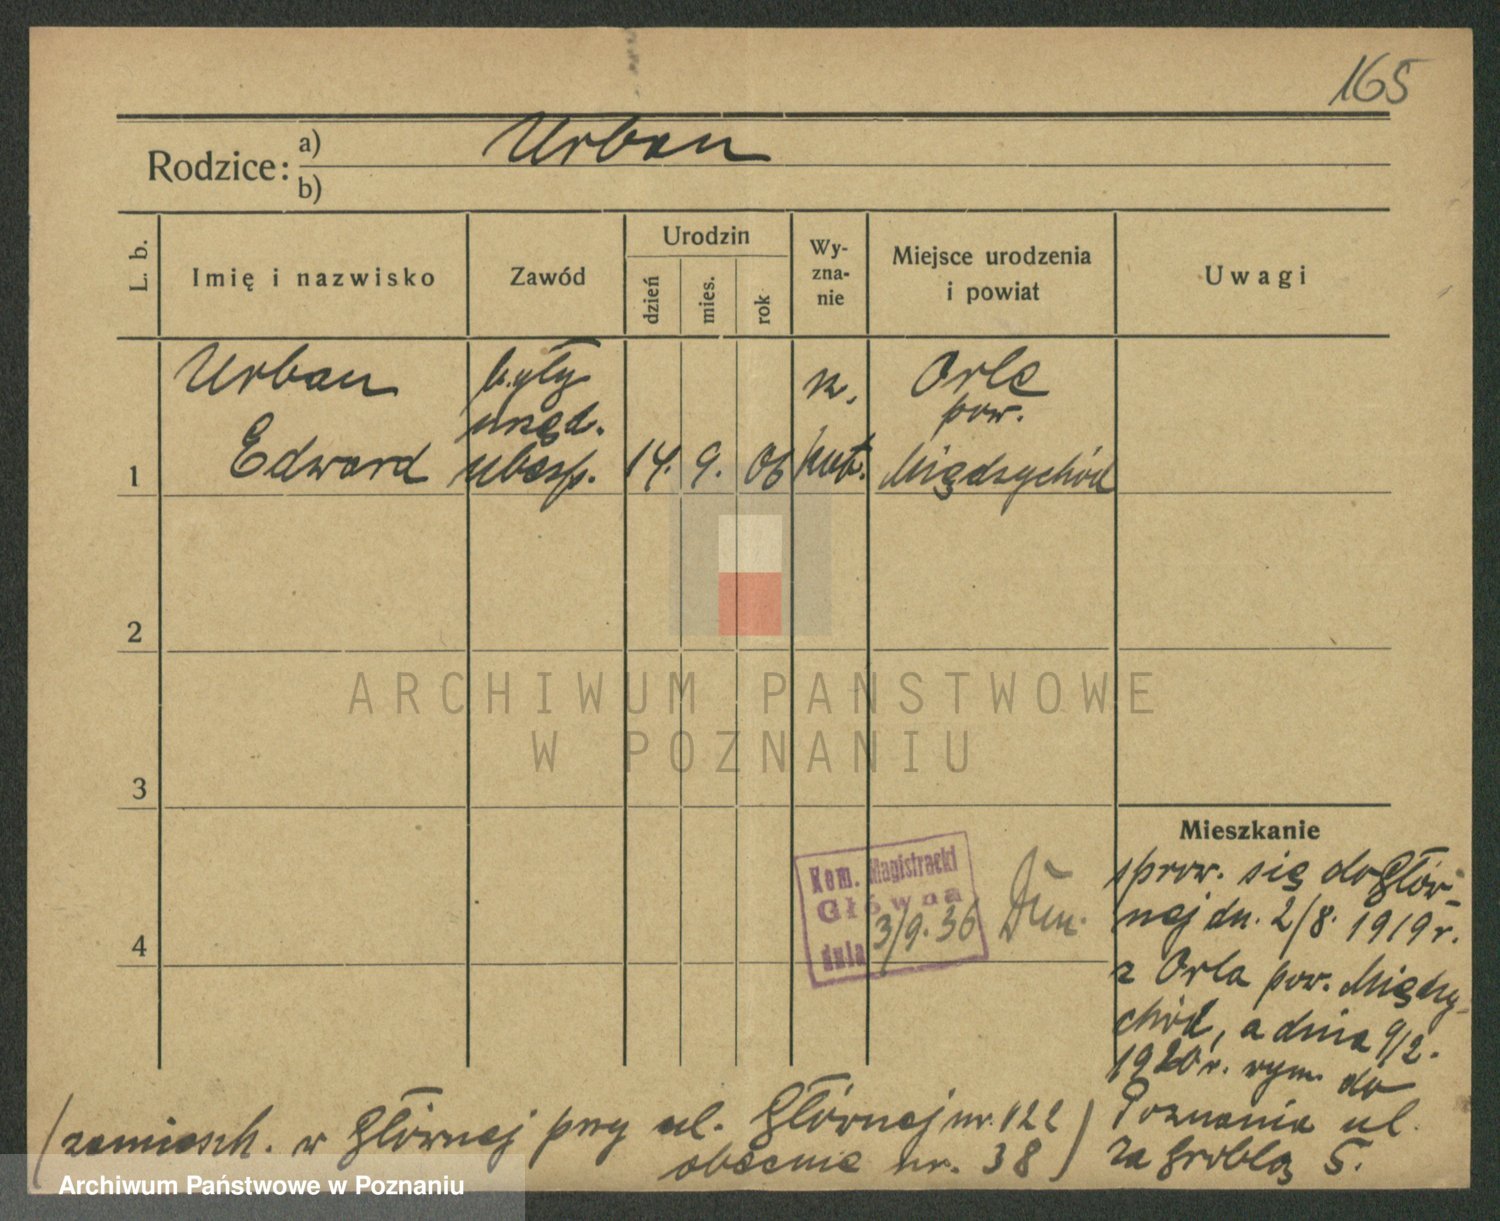 165
Rodzice: a) Urban
b)
L. b.
Imię i nazwisko
Zawód
Urodzin
dzień
mies.
rok
Wy-
zna-
nie
Miejsce urodzenia
i powiat
Uwagi
1
Urban
Edward
były
urzęd.
ubezp.
14. 9. 06
rz.
kat.
Orle
pow.
Międzychód
2
3
4
ARCHIWUM PAŃSTWOWE
W POZNANIU
Kom. Magistracki
Główna
dnia 3/9. 36
Mieszkanie
sprow. się do Głów-
nej dn. 2/8. 1919 r.
z Orla pow. Między-
chód, a dnia 9/2.
1920 r. wym. do
Poznania ul.
za Groblą 5.
(zamieszk. w Głównej przy ul. Głównej nr. 122
obecnie nr. 38)
Archiwum Państwowe w Poznaniu